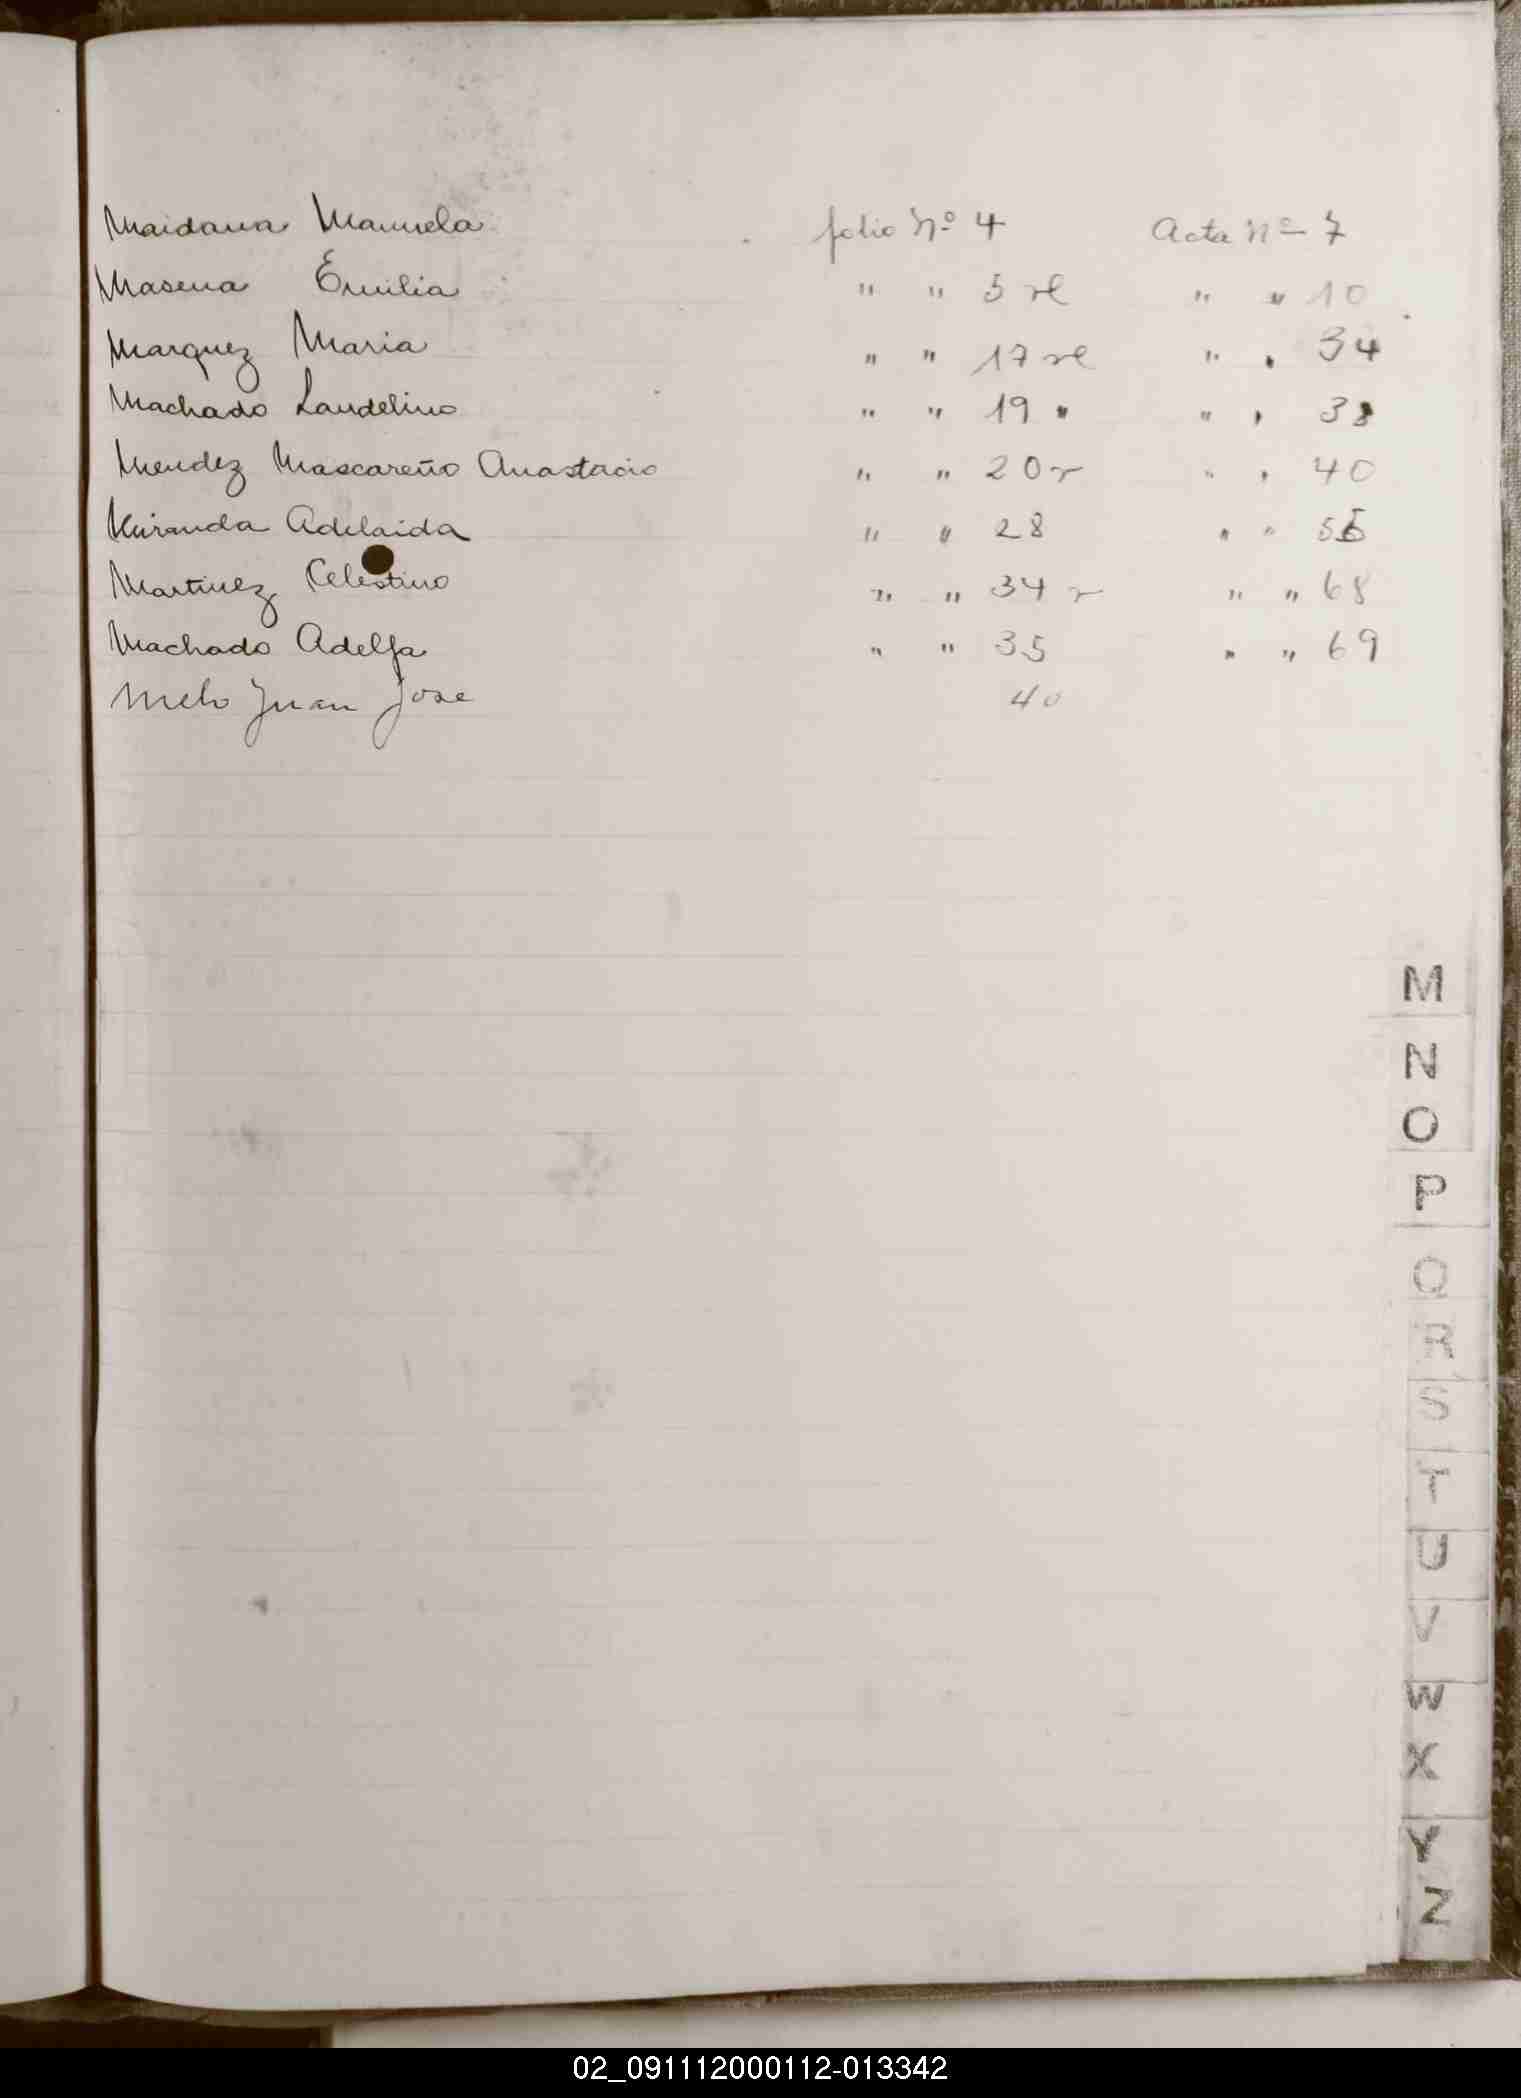 Maidana Manuela folio Nº 4 Acta Nº 7
Masena Emilia " " 5 vl " " 10
Marquez Maria " " 17 vl " " 34
Machado Laudelino " " 19 " " " 38
Mendez Mascareño Anastacio " " 20 r " " 40
Miranda Adelaida " " 28 " "
Martinez Celestino " " 34 r " " 68
Machado Adelfa " " 35 " " 69
Melo Juan Jose 40
M
N
O
P
Q
R
S
T
U
V
W
X
Y
Z
02_091112000112-013342